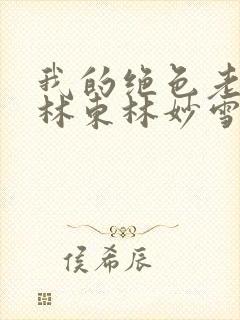 我的绝色老
林东林妙雪
侯希辰